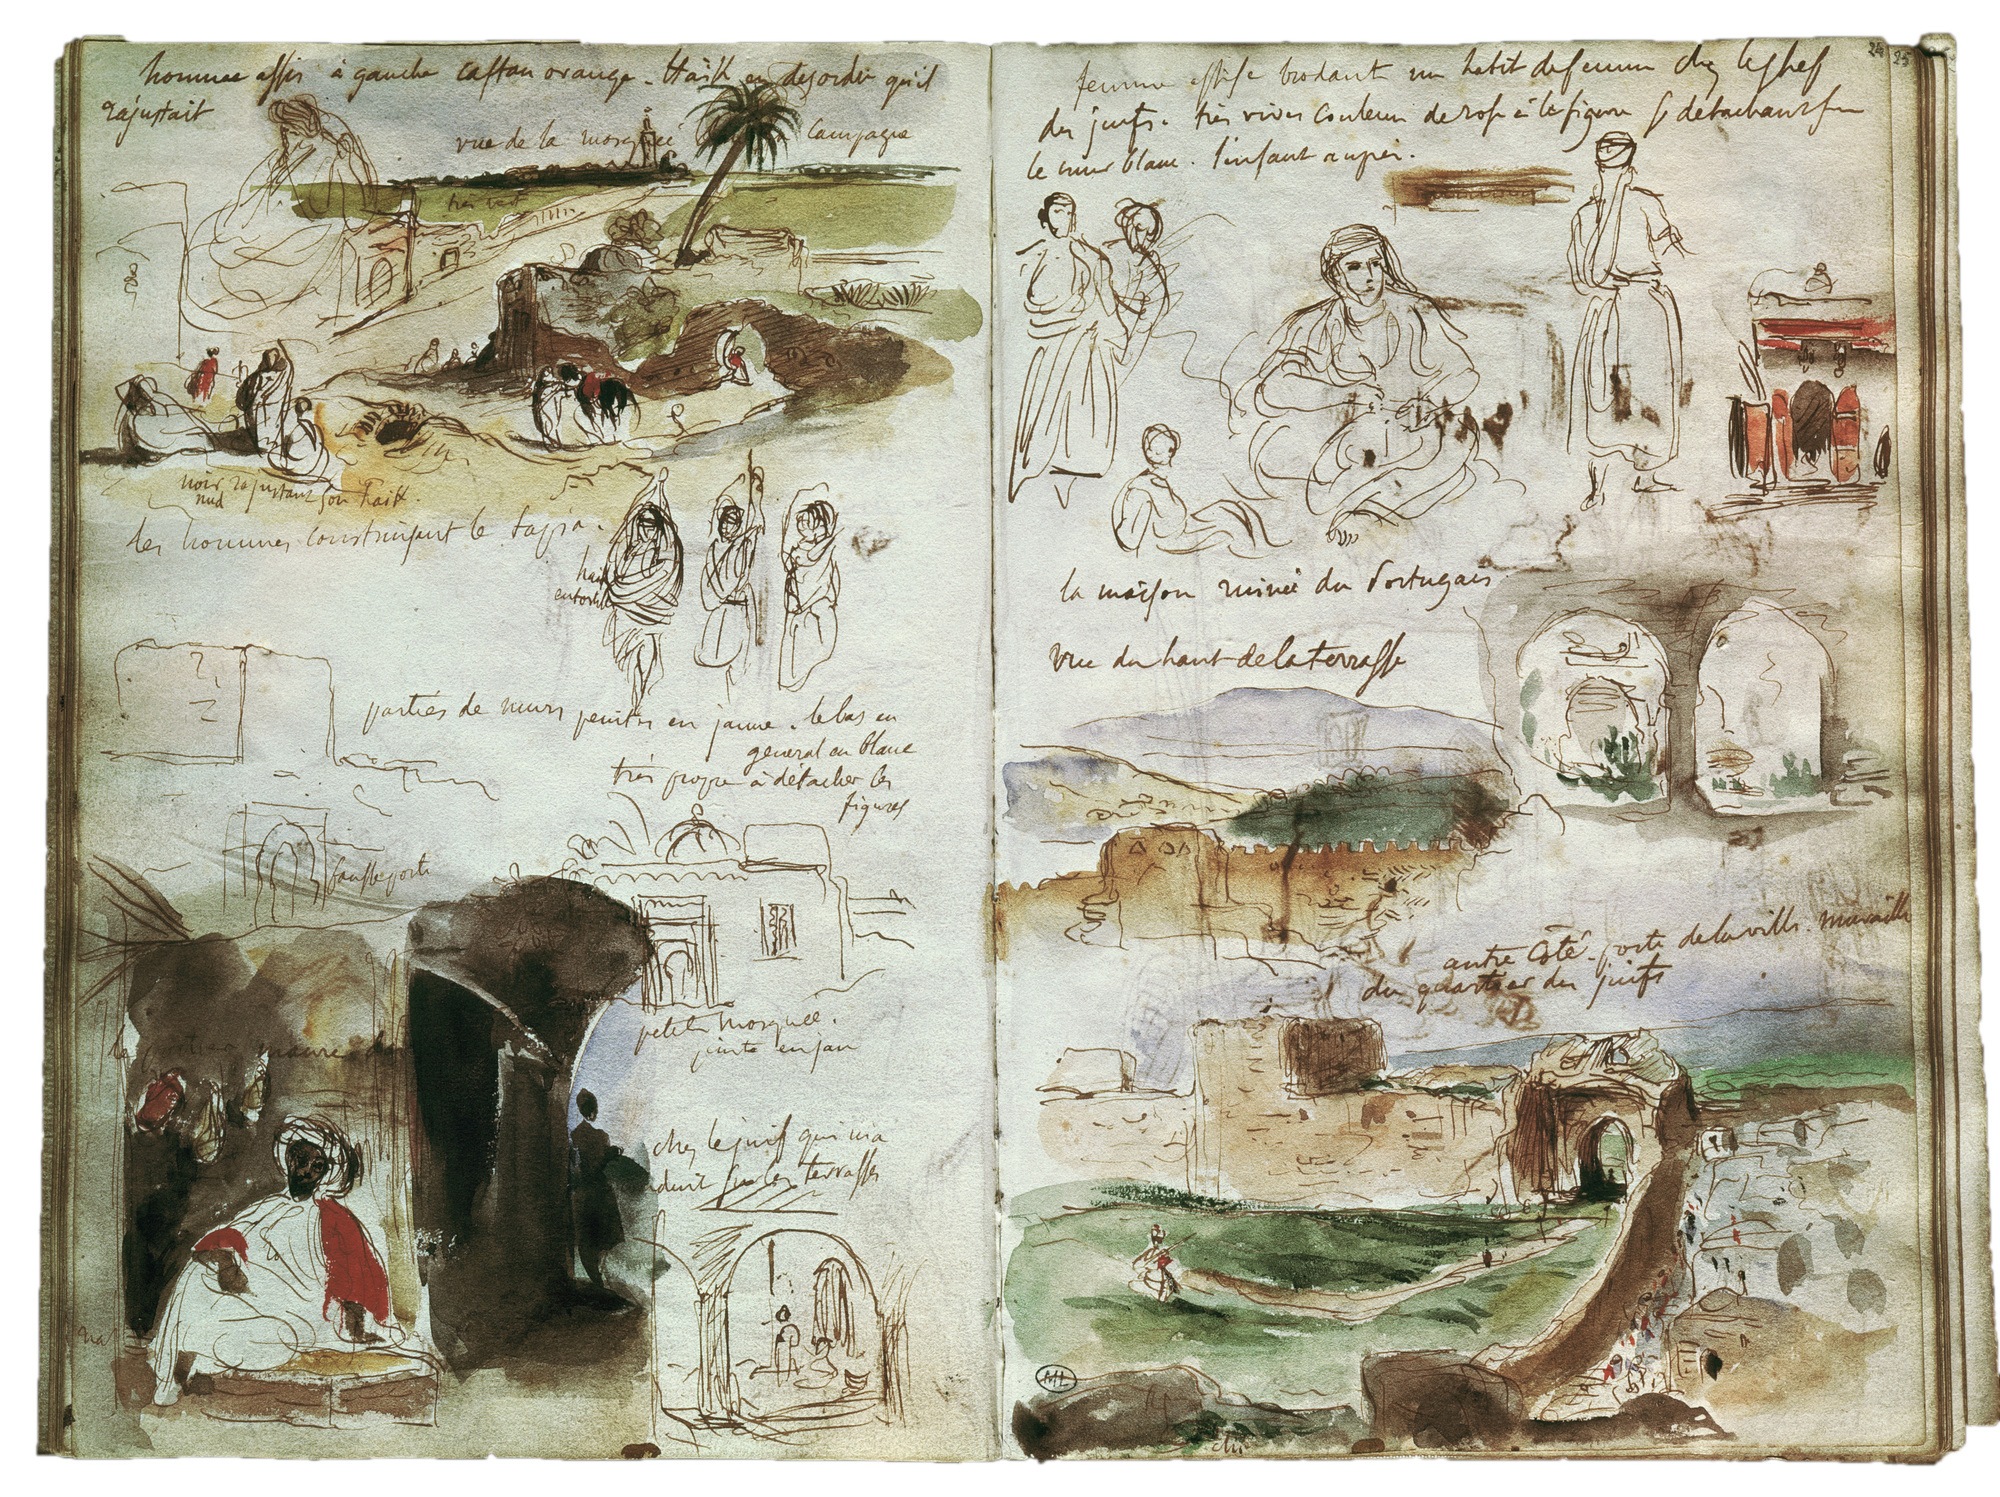 homme assis à gauche caftan orange. Haïk en desordre qu'il
rajustait
vue de la mosquée
campagne
très vert
noir rajustant son haïk.
nud
des hommes construisant le tappia.
haik
entortillé
parties de murs peintes en jaune. le bas en
general en blanc
très propre à détacher les
figures
fausse porte
petite mosquée.
peinte en jau
le portier maure
chez le juif qui m'a
duit sur les terrasses
24
25
femme assise brodant un habit de femme chez le chef
des juifs. très vives couleurs de rose à la figure se détachant sur
le mur blanc. l'enfant auprès.
la maison ruinée du Portugais
vue du haut de la terrasse
autre côté. porte de la ville. muraille
du quartier des juifs
ML